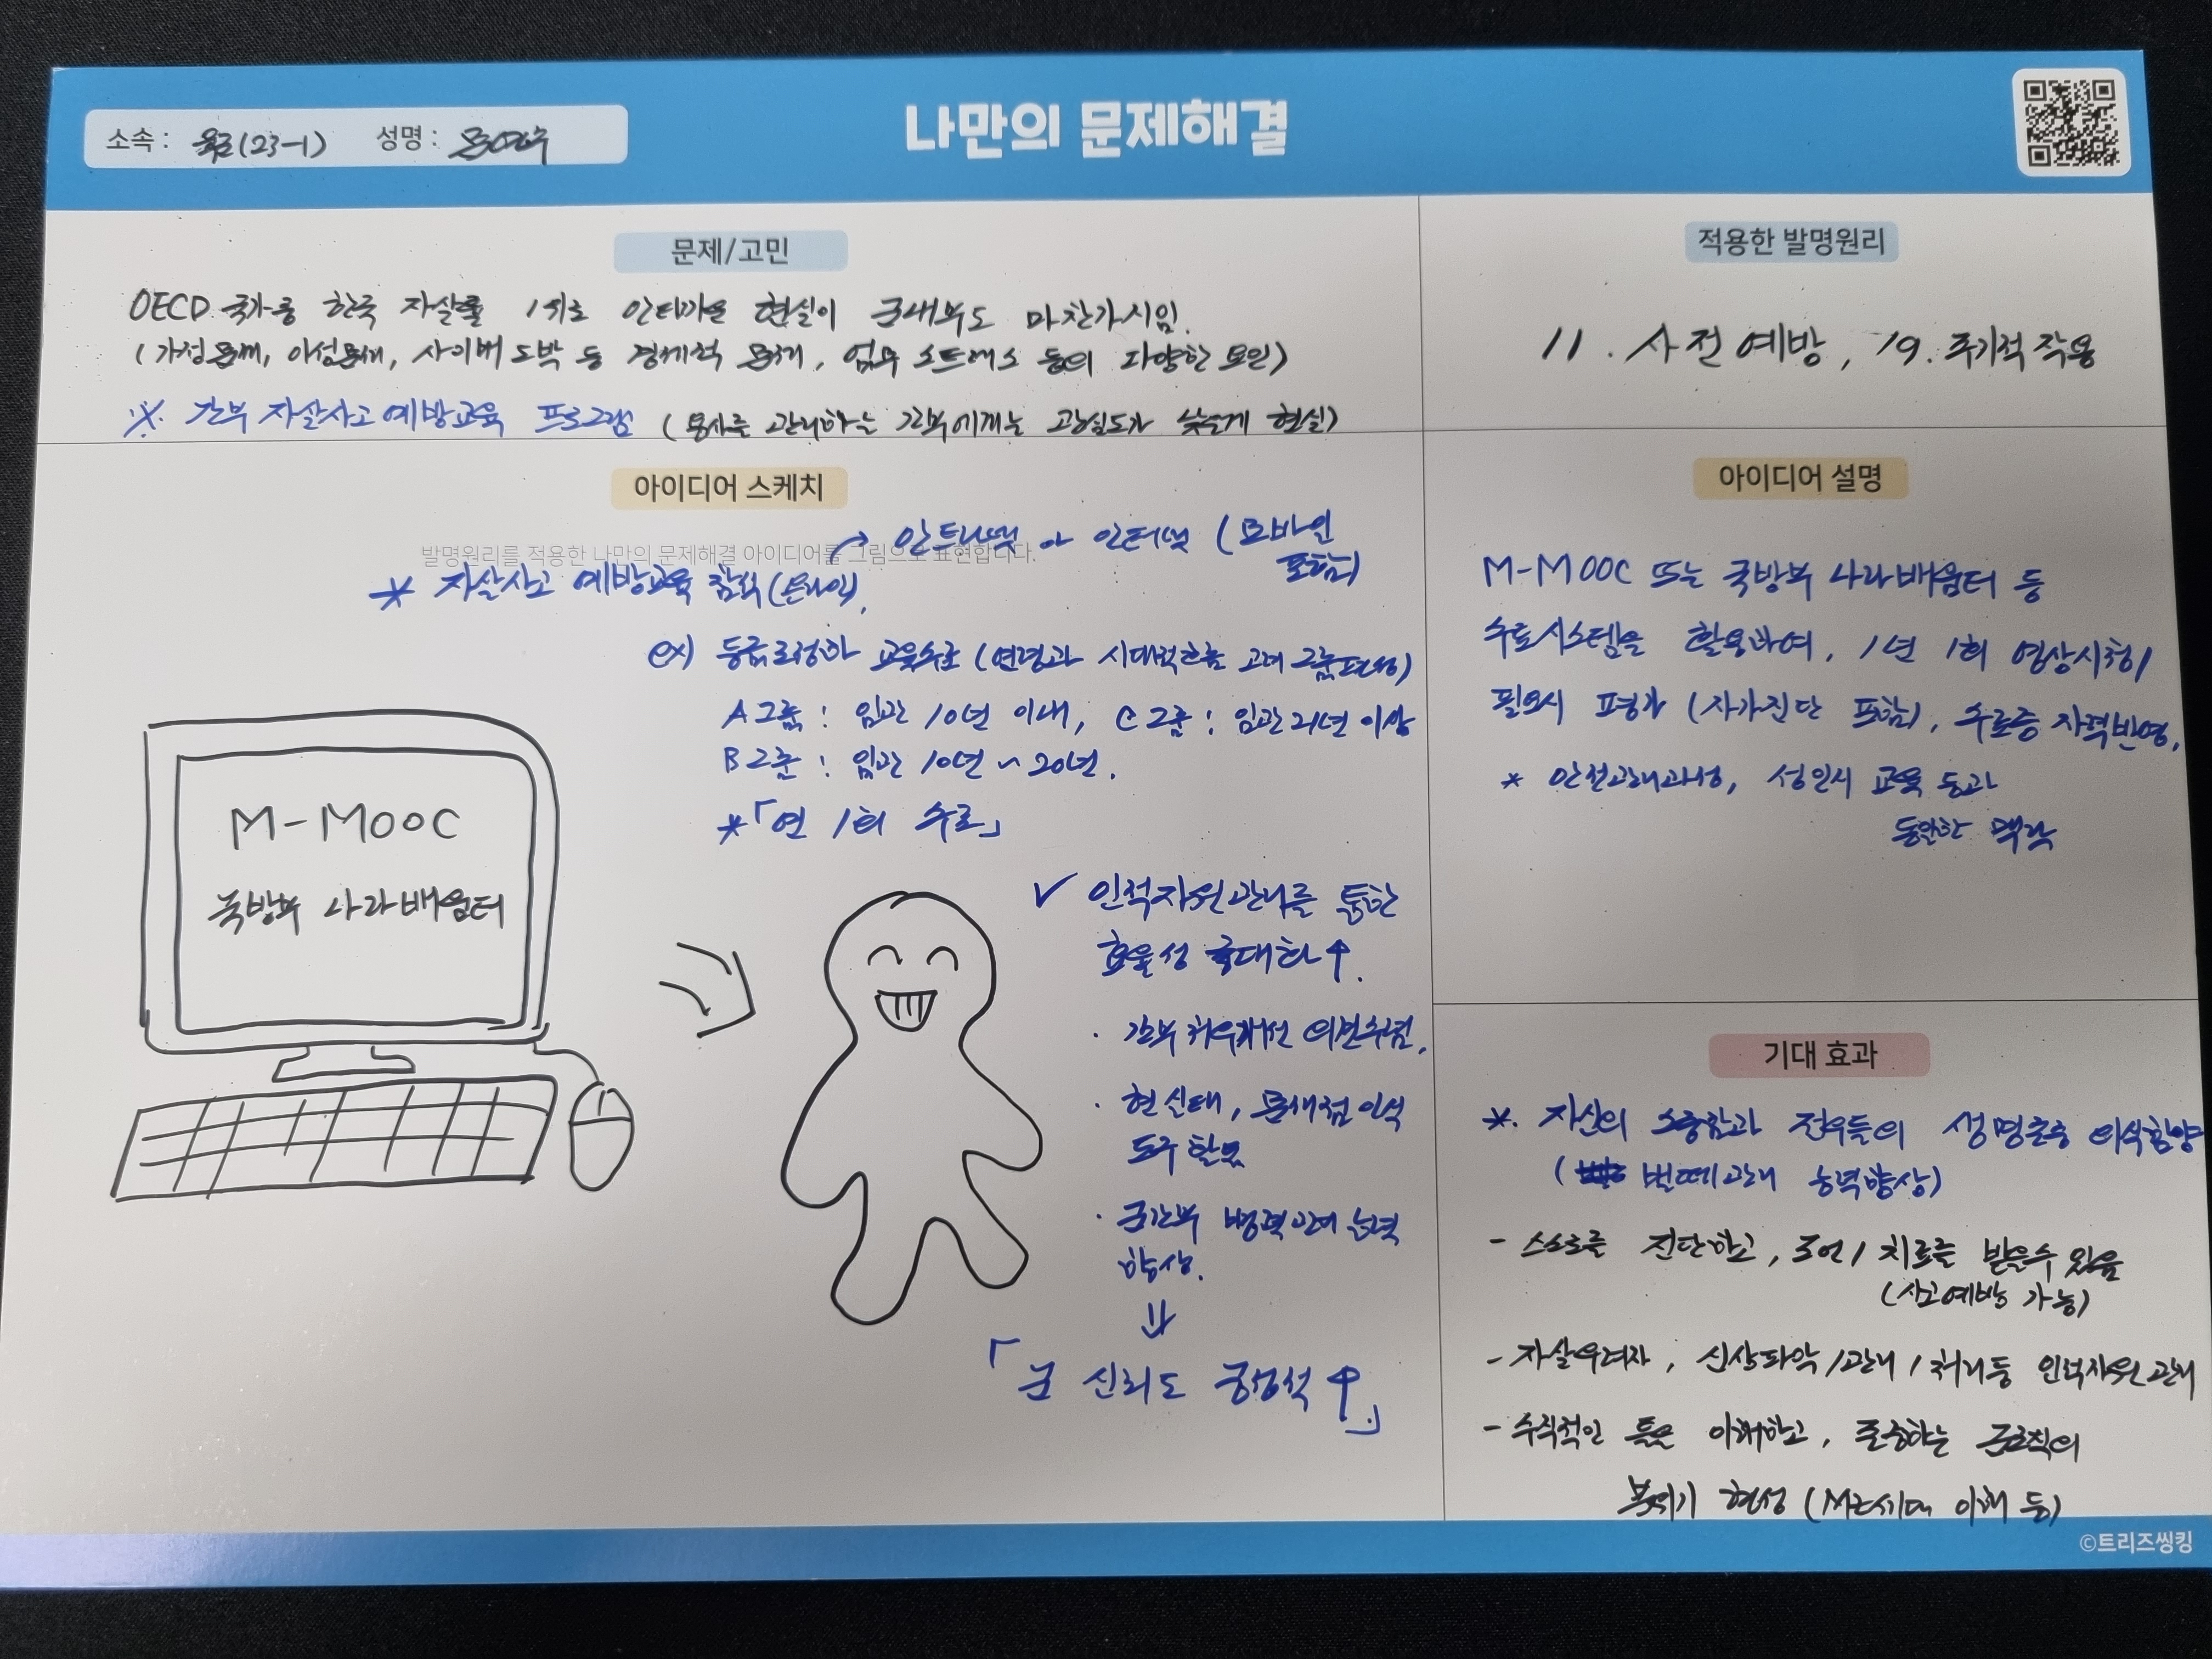 나만의 문제해결
소속 : (23-1) 성명 :
문제/고민
OECD 국가중 한국 자살률 1위로 안타까운 현실이 군내부도 마찬가지임.
(가정문제, 이성문제, 사이버 도박 등 경제적 문제, 업무 스트레스 등의 다양한 요인)
※ 간부 자살사고 예방교육 프로그램 (용사를 관리하는 간부에게는 관심도가 낮은게 현실)
적용한 발명원리
11. 사전예방, 19. 주기적 작용
아이디어 스케치
발명원리를 적용한 나만의 문제해결 아이디어를 그림으로 표현합니다.
→ 인트라넷 or 인터넷 (모바일
포함)
* 자살사고 예방교육 참석(온라인),
ex) 등급조정하 교육수료 (연령과 시대적흐름 고려 그룹편성)
A그룹 : 임관 10년 이내, C그룹 : 임관 21년 이상
B그룹 : 임관 10년 ~ 20년.
*「연 1회 수료」
M-MOOC
국방부 나라배움터
✓ 인적자원관리를 통한
효율성 극대화↑.
· 간부 처우개선 의견수렴,
· 현 실태, 문제점 인식
도구 활용
· 군간부 병력관리 능력
향상.
⇓
「군 신뢰도 긍정적↑」
아이디어 설명
M-MOOC 또는 국방부 나라배움터 등
수료시스템을 활용하여, 1년 1회 영상시청/
필요시 평가 (자가진단 포함), 수료증 자력반영,
* 안전관리과정, 성인지 교육 등과
동일한 맥락
기대 효과
*. 자신의 소중함과 전우들의 생명존중 의식함양
( 벗떼관리 능력향상)
- 스스로를 진단하고, 조언/치료를 받을수 있음
(사고예방 가능)
- 자살우려자, 신상파악/관리/처리등 인적자원관리
- 수직적인 틀을 이해하고, 존중하는 군조직의
분위기 형성 (MZ세대 이해 등)
©트리즈씽킹